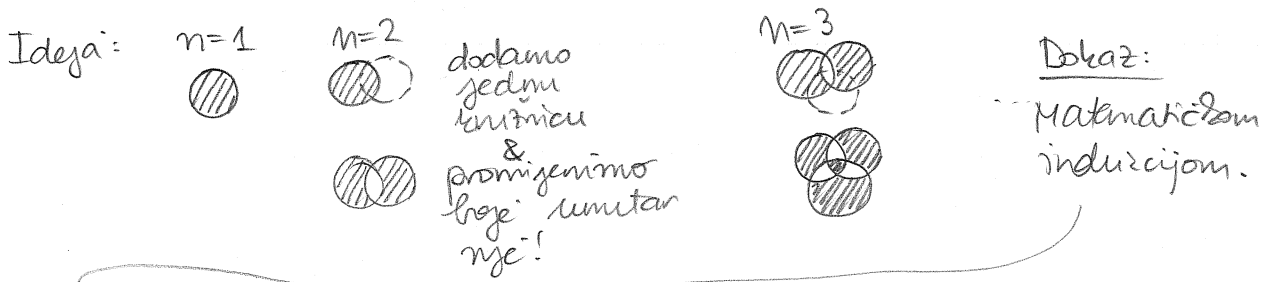 Ideja: n=1 n=2 n=3
dodamo
jednu
kružnicu
&
promijenimo
boje unutar
nje!
Dokaz:
Matematičkom
indukcijom.